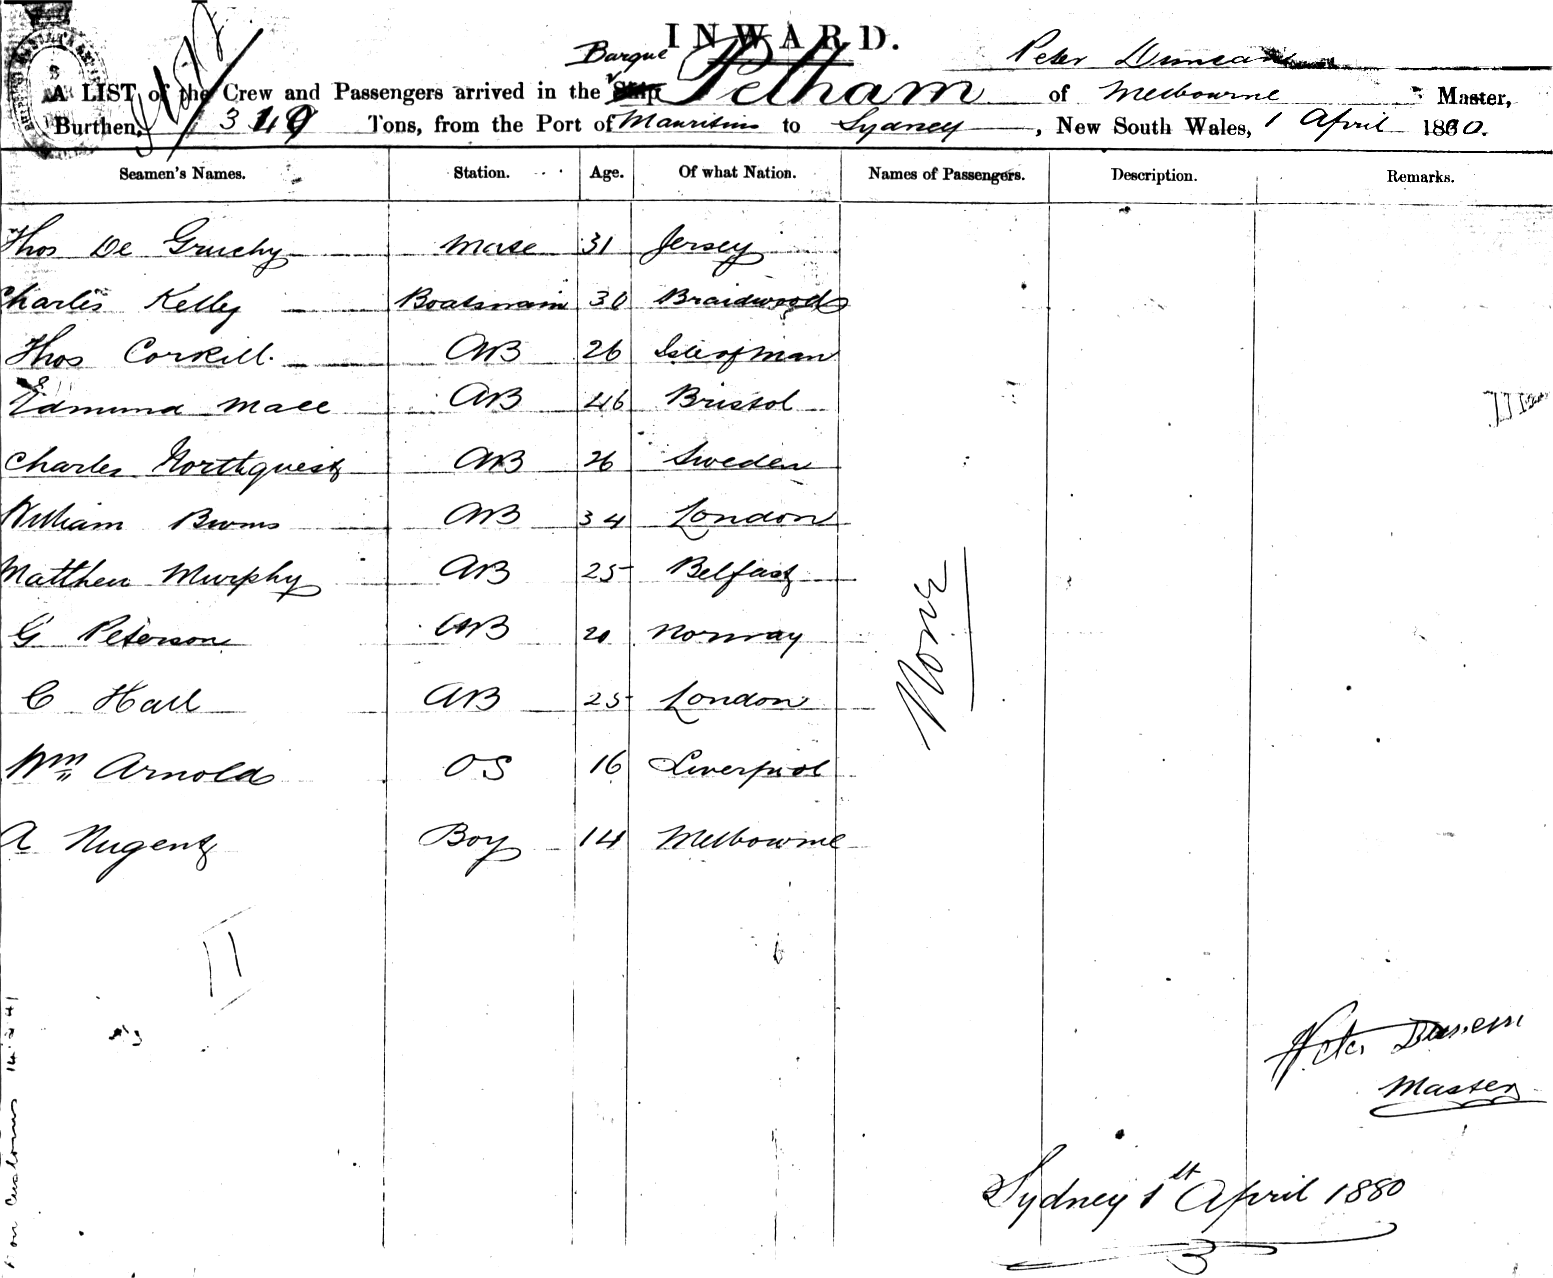 INWARD.
Barque Peter Duncan
A LIST of the Crew and Passengers arrived in the Ship Pelham of Melbourne Master,
Burthen, 349 Tons, from the Port of Mauritius to Sydney, New South Wales, 1 April 1880.
Seamen's Names. Station. Age. Of what Nation. Names of Passengers. Description. Remarks.
Thos De Gruchy Mate 31 Jersey
Charles Kelly Boatswain 30 Braidwood
Thos Corkill AB 26 Isle of Man
Edmund Mace AB 46 Bristol
Charles Northquest AB 26 Sweden
William Burns AB 34 London
Matthew Murphy AB 25 Belfast
G Peterson AB 20 Norway
C Hall AB 25 London
Wm Arnold OS 16 Liverpool
A Nugent Boy 14 Melbourne
None
11
Peter Duncan
Master
Sydney 1st April 1880
on Customs 14.2.41